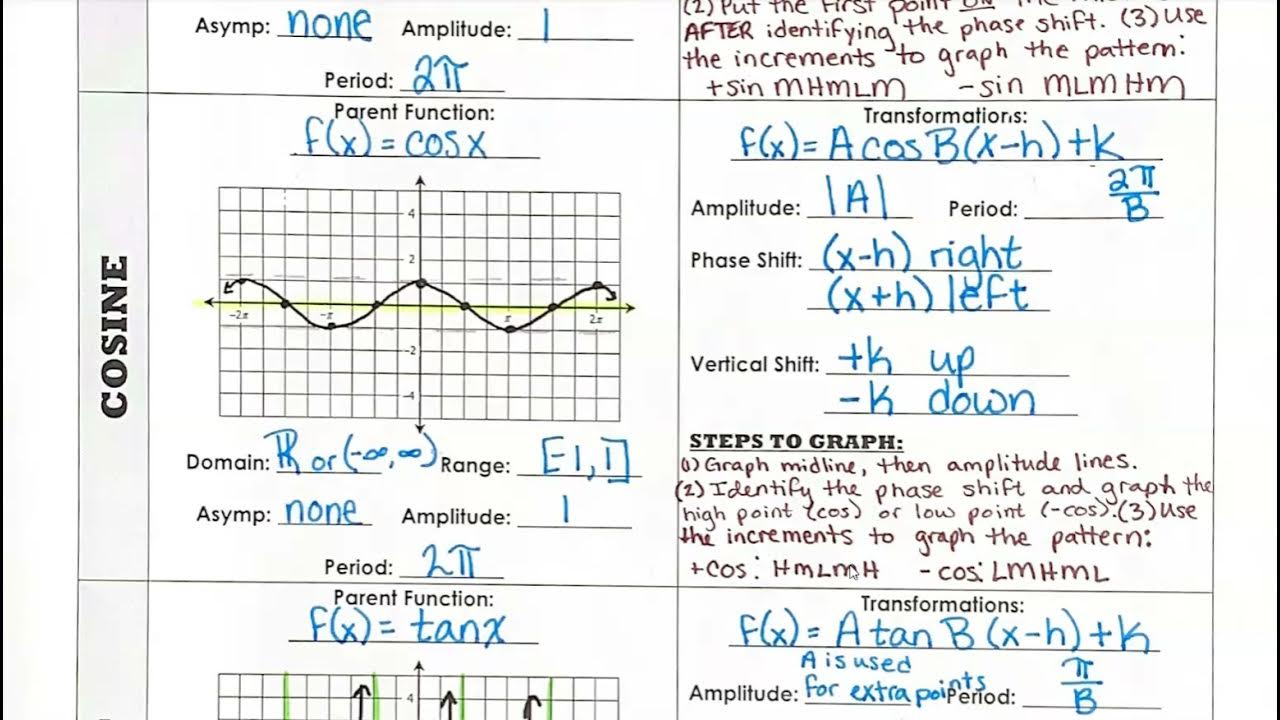 Asymp: none Amplitude: 1
Period: 2π
(2) Put the first point ON the
AFTER identifying the phase shift. (3) Use
the increments to graph the pattern:
+sin MHMLM -sin MLMHM
COSINE
Parent Function:
f(x) = cosx
4
2
-2π
-π
π
2π
-2
-4
Domain: ℝ or (-∞, ∞) Range: [-1, 1]
Asymp: none Amplitude: 1
Period: 2π
Transformations:
f(x) = A cos B(x-h) + K
Amplitude: |A| Period: 2π/B
Phase Shift: (x-h) right
(x+h) left
Vertical Shift: +K up
-K down
STEPS TO GRAPH:
(1) Graph midline, then amplitude lines.
(2) Identify the phase shift and graph the
high point (cos) or low point (-cos). (3) Use
the increments to graph the pattern:
+cos: HMLMH -cos: LMHML
Parent Function:
f(x) = tanx
4
Transformations:
f(x) = A tan B (x-h) + K
A is used
Amplitude: for extra points Period: π/B